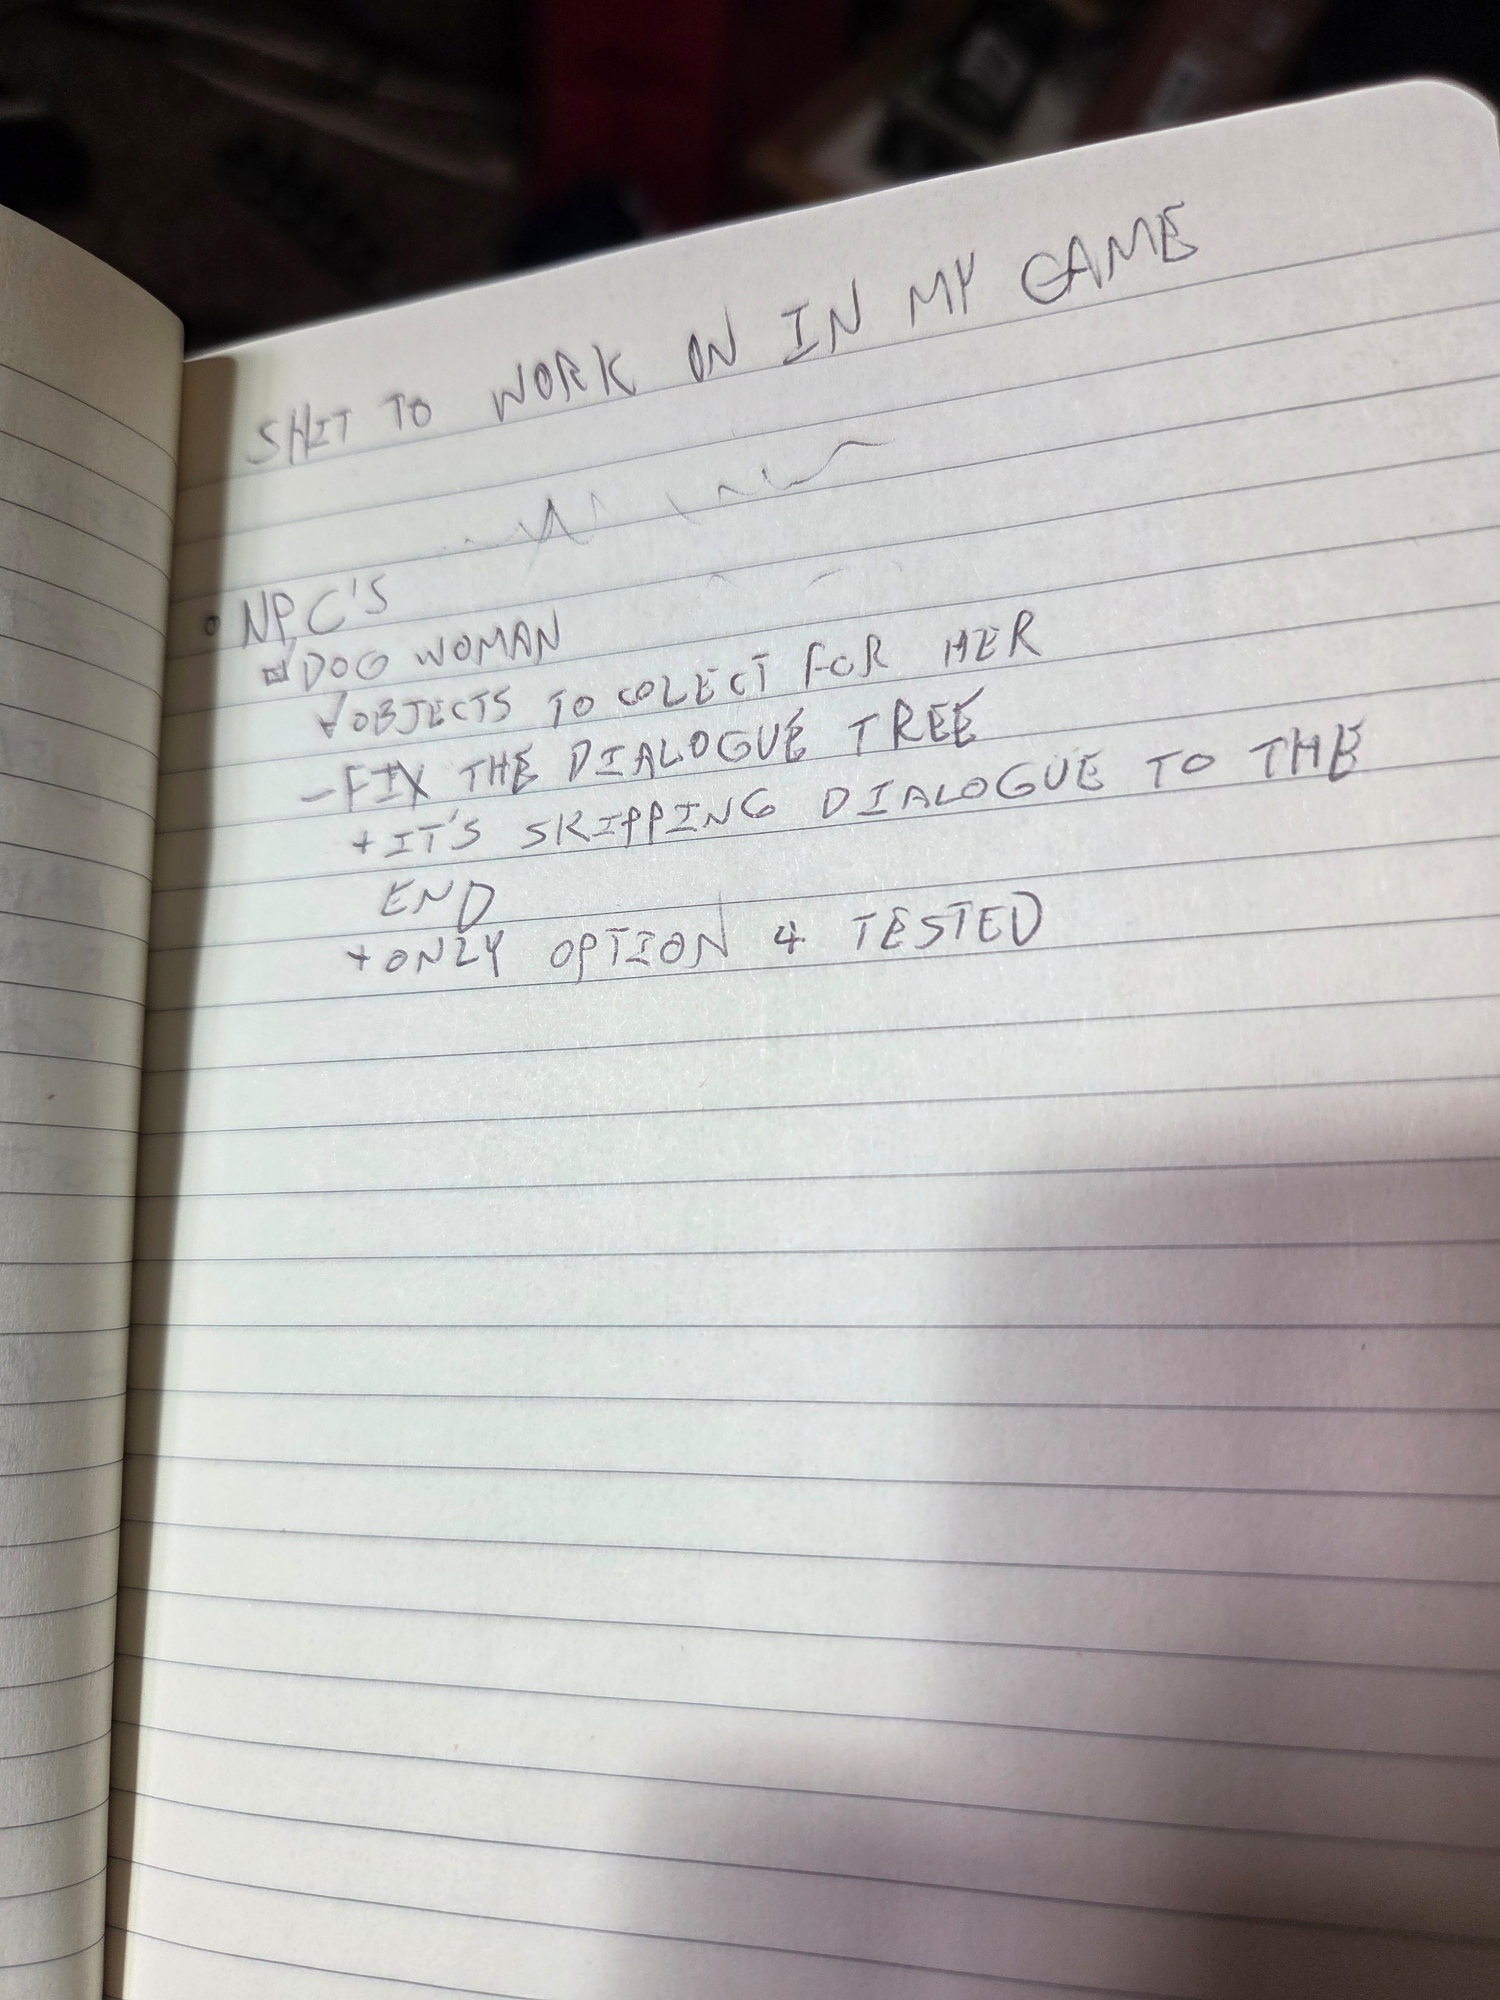 SHIT TO WORK ON IN MY GAME
• NPC'S
DOG WOMAN
✓OBJECTS TO COLECT FOR HER
-FIX THE DIALOGUE TREE
+IT'S SKIPPING DIALOGUE TO THE
END
+ONLY OPTION 4 TESTED